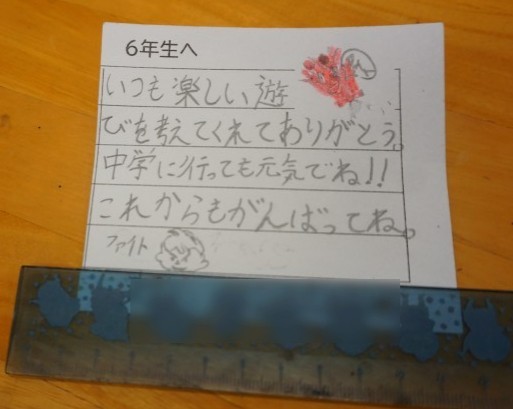 6年生へ
いつも楽しい遊
びを考えてくれてありがとう。
中学に行っても元気でね!!
これからもがんばってね。
ファイト